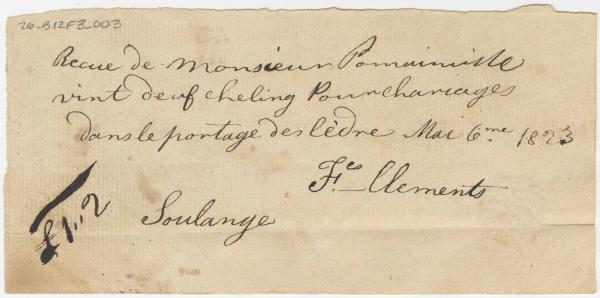 26-B12F3-003
Recue de Monsieur Pomainville
vint deuf cheling Pour chariages
dans le portage des Cèdre Mai 6.me 1823
F.s Clements
Soulange
£1..2